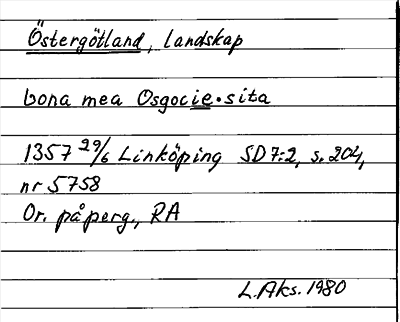 Östergötland, landskap
bona mea Osgocie . sita
1357 29/6 Linköping SD 7:2, s. 204,
nr 5758
Or. på perg., RA
L. Aks. 1980